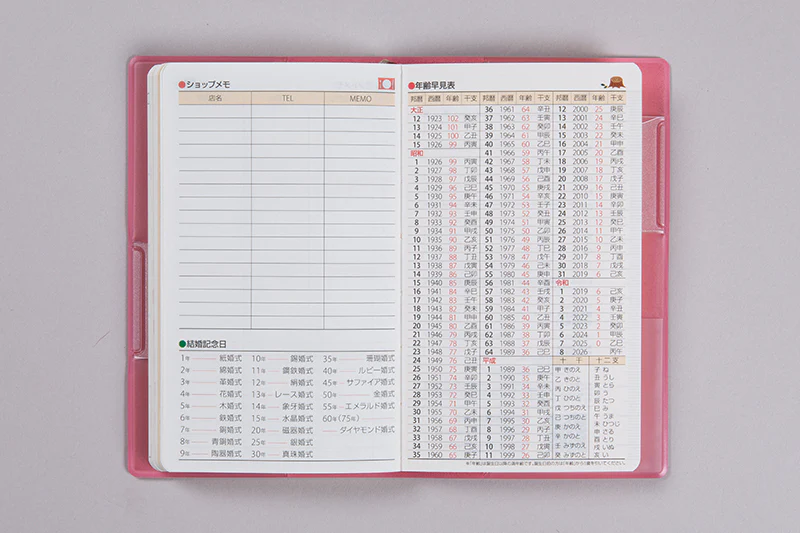 ●ショップメモ
店名 TEL MEMO
●結婚記念日
1年 紙婚式
2年 綿婚式
3年 革婚式
4年 花婚式
5年 木婚式
6年 鉄婚式
7年 銅婚式
8年 青銅婚式
9年 陶器婚式
10年 錫婚式
11年 鋼鉄婚式
12年 絹婚式
13年 レース婚式
14年 象牙婚式
15年 水晶婚式
20年 磁器婚式
25年 銀婚式
30年 真珠婚式
35年 珊瑚婚式
40年 ルビー婚式
45年 サファイア婚式
50年 金婚式
55年 エメラルド婚式
60年(75年)
ダイヤモンド婚式
●年齢早見表
邦暦 西暦 年齢 干支
大正
12 1923 102 癸亥
13 1924 101 甲子
14 1925 100 乙丑
15 1926 99 丙寅
昭和
1 1926 99 丙寅
2 1927 98 丁卯
3 1928 97 戊辰
4 1929 96 己巳
5 1930 95 庚午
6 1931 94 辛未
7 1932 93 壬申
8 1933 92 癸酉
9 1934 91 甲戌
10 1935 90 乙亥
11 1936 89 丙子
12 1937 88 丁丑
13 1938 87 戊寅
14 1939 86 己卯
15 1940 85 庚辰
16 1941 84 辛巳
17 1942 83 壬午
18 1943 82 癸未
19 1944 81 甲申
20 1945 80 乙酉
21 1946 79 丙戌
22 1947 78 丁亥
23 1948 77 戊子
24 1949 76 己丑
25 1950 75 庚寅
26 1951 74 辛卯
27 1952 73 壬辰
28 1953 72 癸巳
29 1954 71 甲午
30 1955 70 乙未
31 1956 69 丙申
32 1957 68 丁酉
33 1958 67 戊戌
34 1959 66 己亥
35 1960 65 庚子
邦暦 西暦 年齢 干支
36 1961 64 辛丑
37 1962 63 壬寅
38 1963 62 癸卯
39 1964 61 甲辰
40 1965 60 乙巳
41 1966 59 丙午
42 1967 58 丁未
43 1968 57 戊申
44 1969 56 己酉
45 1970 55 庚戌
46 1971 54 辛亥
47 1972 53 壬子
48 1973 52 癸丑
49 1974 51 甲寅
50 1975 50 乙卯
51 1976 49 丙辰
52 1977 48 丁巳
53 1978 47 戊午
54 1979 46 己未
55 1980 45 庚申
56 1981 44 辛酉
57 1982 43 壬戌
58 1983 42 癸亥
59 1984 41 甲子
60 1985 40 乙丑
61 1986 39 丙寅
62 1987 38 丁卯
63 1988 37 戊辰
64 1989 36 己巳
平成
1 1989 36 己巳
2 1990 35 庚午
3 1991 34 辛未
4 1992 33 壬申
5 1993 32 癸酉
6 1994 31 甲戌
7 1995 30 乙亥
8 1996 29 丙子
9 1997 28 丁丑
10 1998 27 戊寅
11 1999 26 己卯
邦暦 西暦 年齢 干支
12 2000 25 庚辰
13 2001 24 辛巳
14 2002 23 壬午
15 2003 22 癸未
16 2004 21 甲申
17 2005 20 乙酉
18 2006 19 丙戌
19 2007 18 丁亥
20 2008 17 戊子
21 2009 16 己丑
22 2010 15 庚寅
23 2011 14 辛卯
24 2012 13 壬辰
25 2013 12 癸巳
26 2014 11 甲午
27 2015 10 乙未
28 2016 9 丙申
29 2017 8 丁酉
30 2018 7 戊戌
31 2019 6 己亥
令和
1 2019 6 己亥
2 2020 5 庚子
3 2021 4 辛丑
4 2022 3 壬寅
5 2023 2 癸卯
6 2024 1 甲辰
7 2025 0 乙巳
8 2026 丙午
十干 十二支
甲 きのえ 子 ね
乙 きのと 丑 うし
丙 ひのえ 寅 とら
丁 ひのと 卯 う
戊 つちのえ 辰 たつ
己 つちのと 巳 み
庚 かのえ 午 うま
辛 かのと 未 ひつじ
壬 みずのえ 申 さる
癸 みずのと 酉 とり
戌 いぬ
亥 い